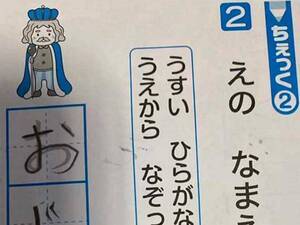 ちぇっく②
2
えの なまえ
うすい ひらがな
うえから なぞっ
お